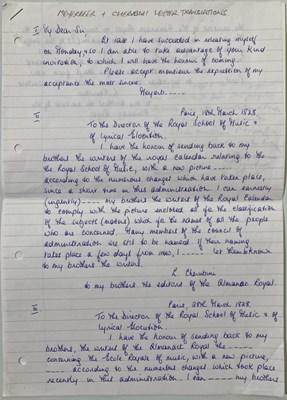 MEYERBEER + CHERUBINI LETTER TRANSLATIONS
I My Dear Sir
At last I have succeeded in making myself
on Monday, & so I am able to take advantage of your kind
invitation, to which I will have the honour of coming.
Please accept monsieur the expression of my
acceptance the most sincere.
Meyerb.....
II Paris, 18th March 1828
To the Director of the Royal School of Music &
of Lyrical Elocution.
I have the honour of sending back to my
brothers the writers of the royal Calendar relating to the
the Royal School of Music, with a new picture -----
according to the numerous changes which have taken place,
since a short time in this administration. I can earnestly
(urgently) ----- my brothers the writers of the Royal Calendar
to comply with the picture enclosed as for the classification
of the subjects (matters) and for the names of all the people
who are concerned. Many members of the council of
administration are still to be named. If their naming
takes place a few days from now, I ----- let them known
to my brothers the writers.
L. Cherubini
to my brothers the editors of the Almanac Royal.
III Paris, 28th March 1828.
To the Director of the Royal School of Music & of
Lyrical Elocution.
I have the honour of sending back to my
brothers, the writers of the Almanac Royal the -----
concerning the Ecole Royale of music, with a new picture,
---- according to the numerous changes which took place
recently in this administration. I can ----- my brothers